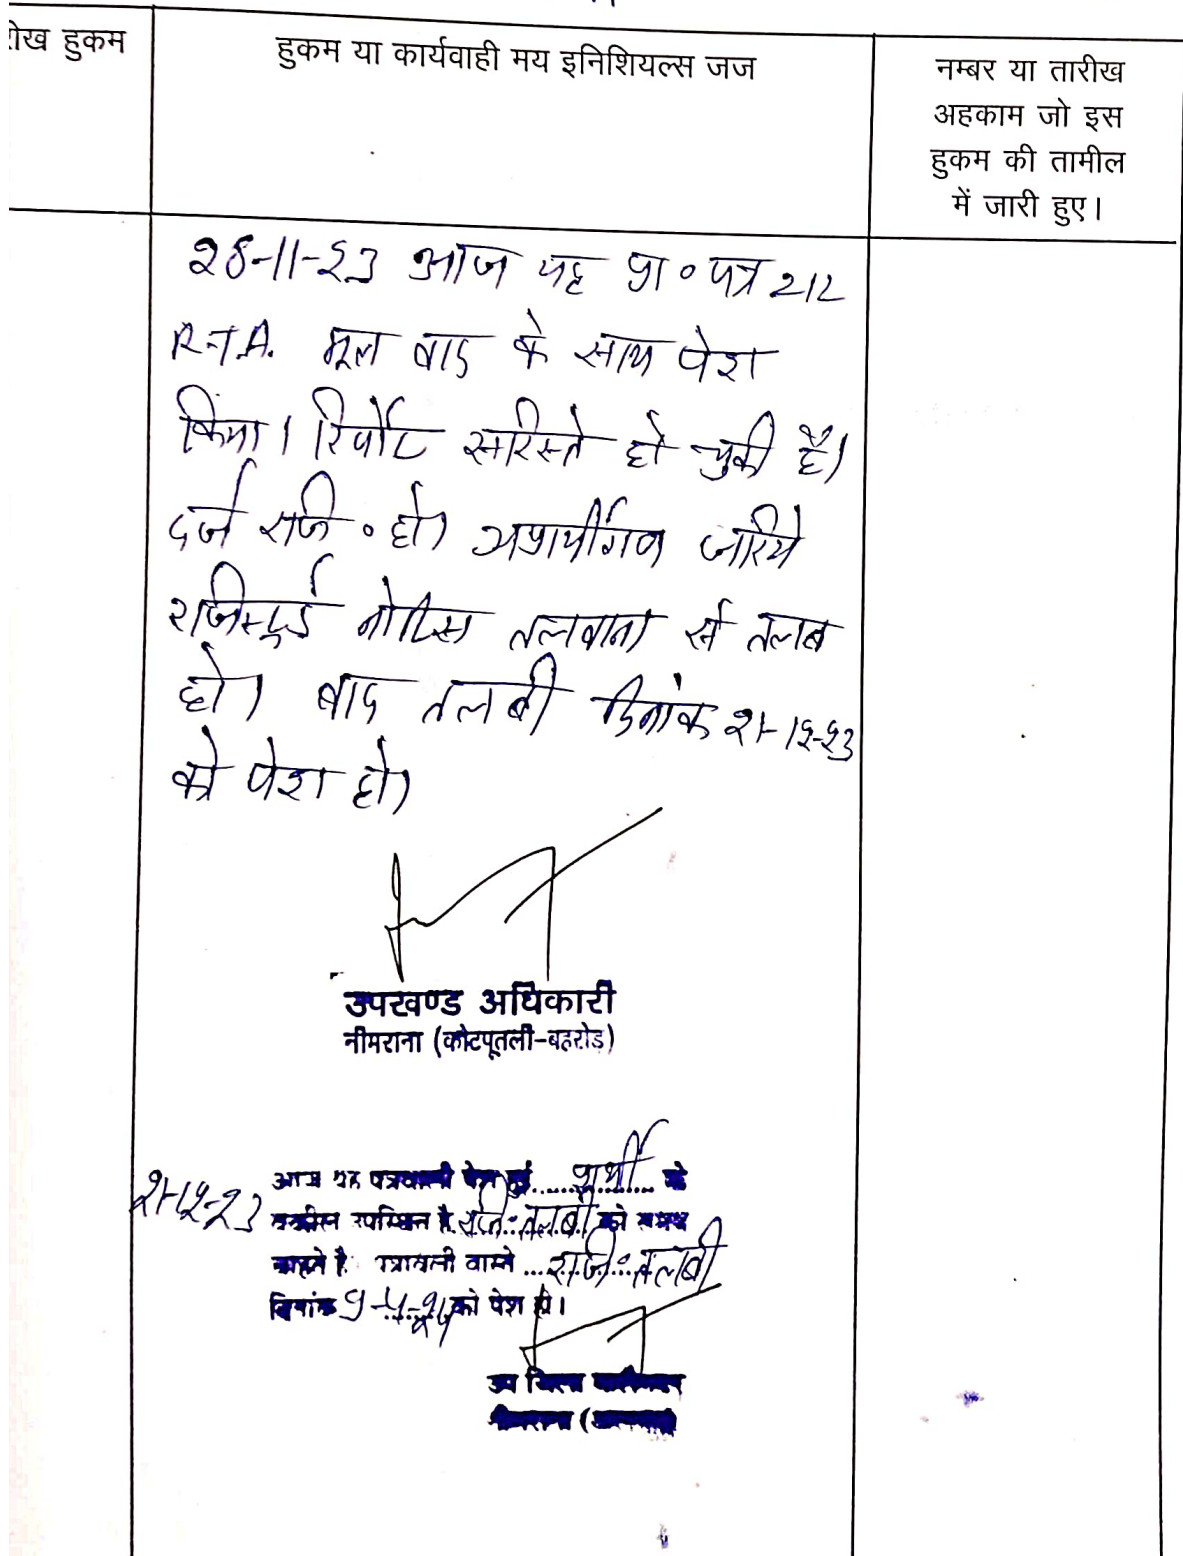 रीख हुकम
हुकम या कार्यवाही मय इनिशियल्स जज
नम्बर या तारीख
अहकाम जो इस
हुकम की तामील
में जारी हुए।
आज यह प्रा॰पत्र 212
R.T.A. मूल वाद के साथ पेश
किया। रिर्पोट सरिस्ते हो चुकी है।
दर्ज रजि॰ हो। अप्रार्थीगण जरिये
रजिस्टर्ड नोटिस तलवाना से तलब
हो। बाद तलबी दिनांक २१-१२-२३
को पेश हो।
उपखण्ड अधिकारी
नीमराना (कोटपूतली-बहरोड़)
२१-१२-२३ आज यह पत्रावली पेश हुई......प्रार्थी...... के
वकील उपस्थित है. रजि॰ तलबी को समय
चाहते है. पत्रावली वास्ते ...रजि॰ तलबी
दिनांक को पेश हो।
उप जिला